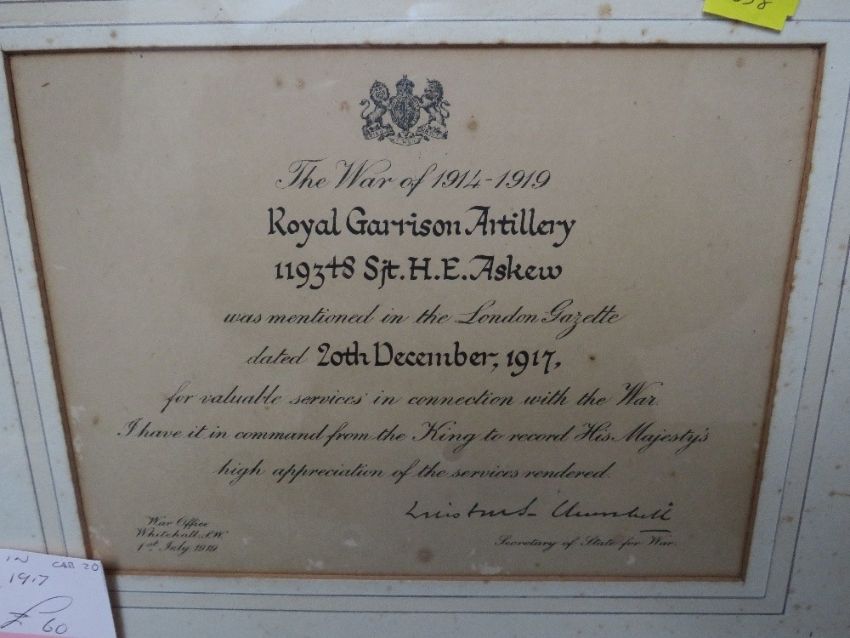 The War of 1914-1919
Royal Garrison Artillery
119348 Sjt. H. E. Askew
was mentioned in the London Gazette
dated 20th December, 1917,
for valuable services in connection with the War.
I have it in command from the King to record His Majesty's
high appreciation of the services rendered.
Winston S. Churchill
War Office
Whitehall, S.W.
1st July 1919
Secretary of State for War.
IN CAB 20
1917
£60